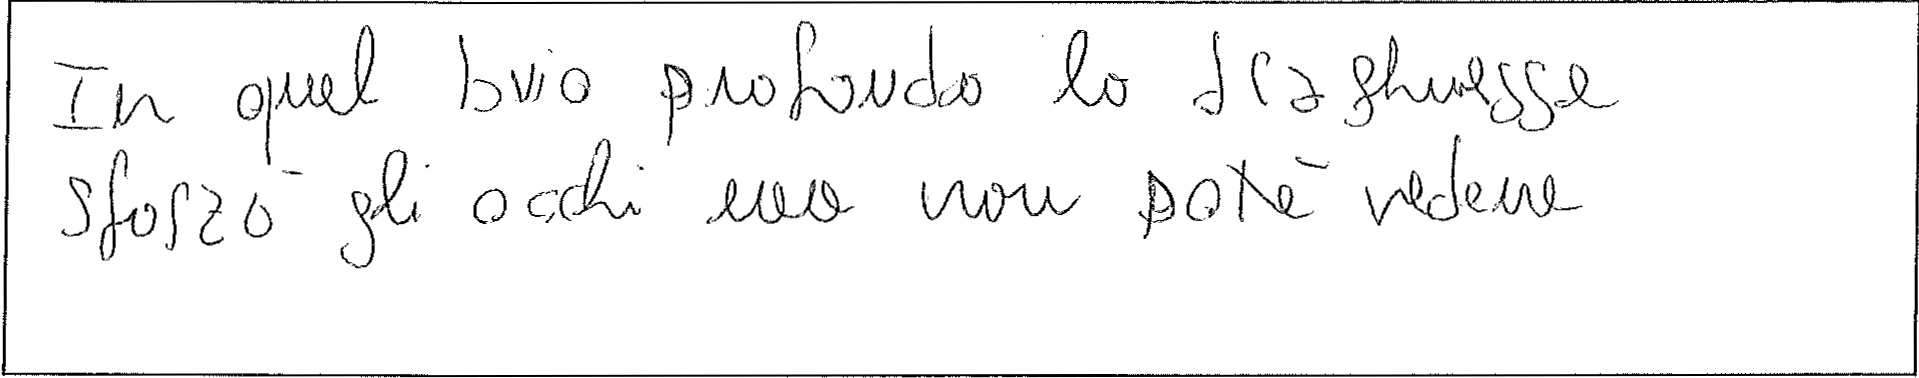 In quel buio profondo lo
sforzò gli occhi ma non potè vedere